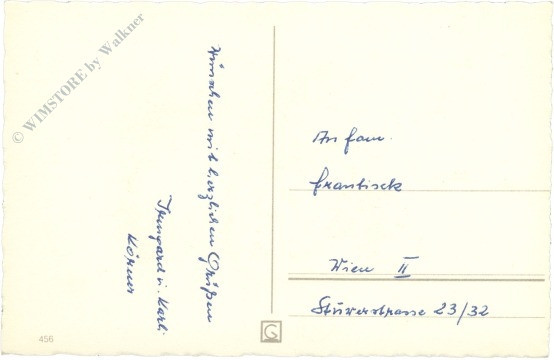 © WIMSTORE by Walkner
Wünschen mit herzlichen Grüßen
Irmgard u. Karli
An Fam.
Frantisek
Wien II
Stuwerstrasse 23/32
456
G